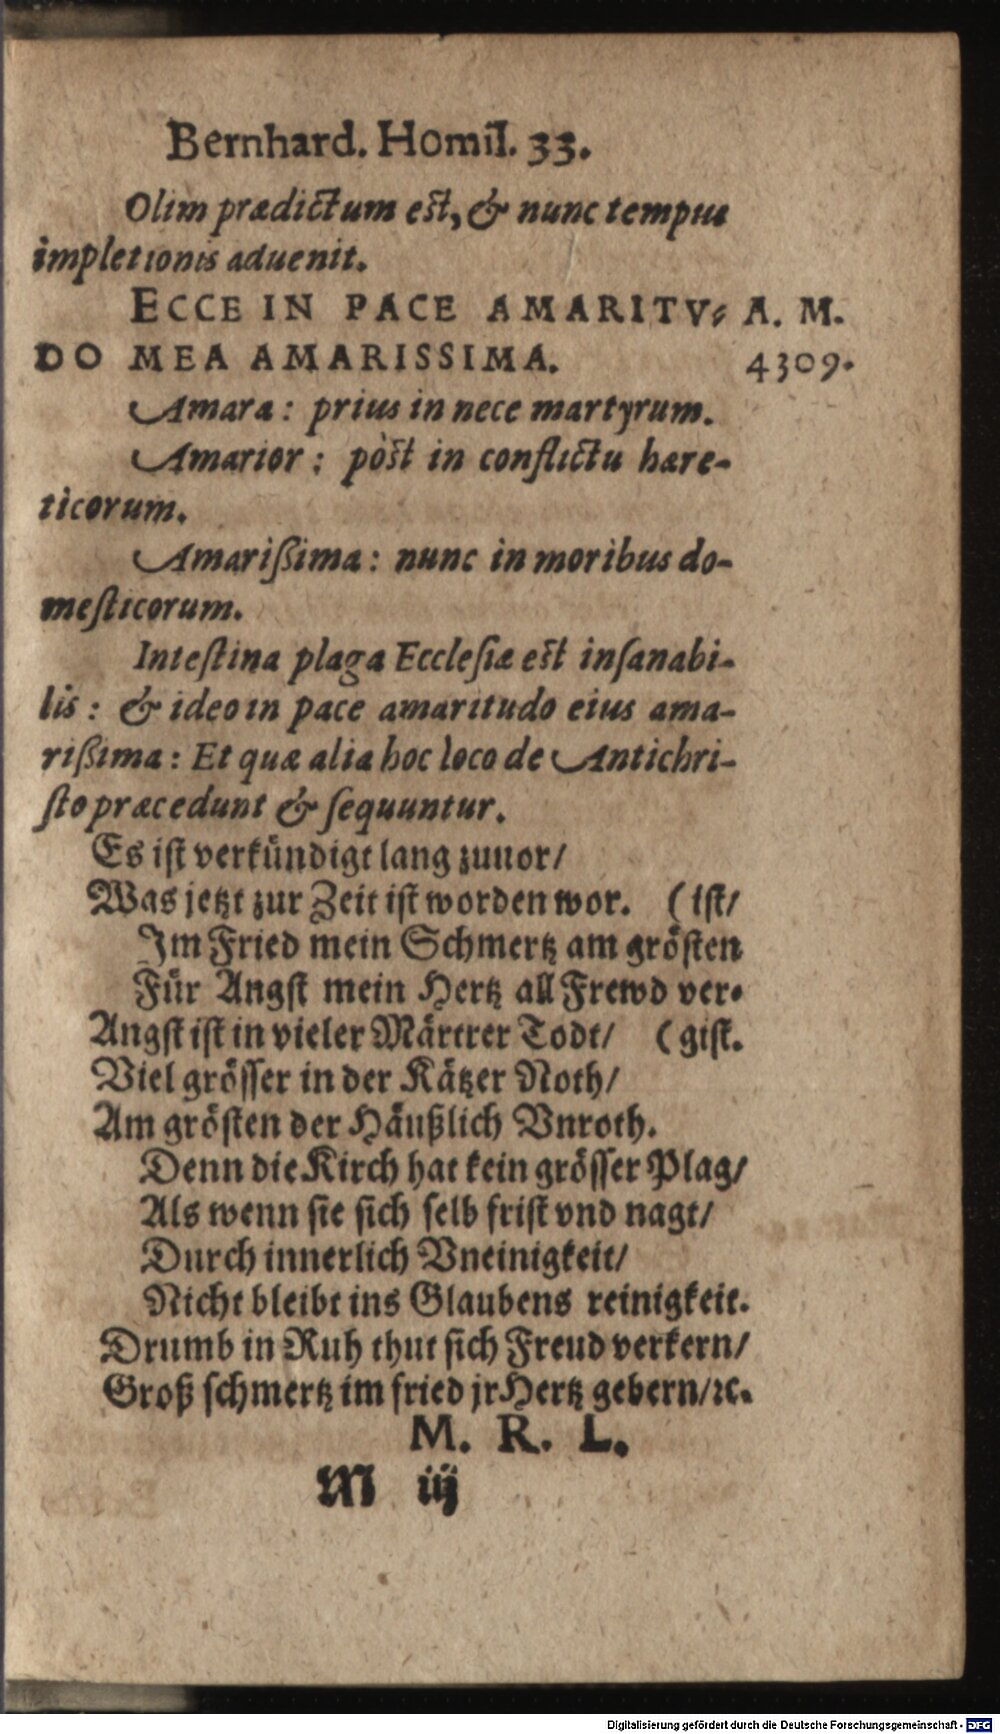 Bernhard. Homil. 33.
Olim prædictum est, & nunc tempus
impletionis aduenit.
ECCE IN PACE AMARITV- A. M.
DO MEA AMARISSIMA. 4309.
Amara: prius in nece martyrum.
Amarior: pòst in conflictu hære-
ticorum.
Amarißima: nunc in moribus do-
mesticorum.
Intestina plaga Ecclesiæ est insanabi-
lis: & ideo in pace amaritudo eius ama-
rißima: Et quæ alia hoc loco de Antichri-
sto præcedunt & sequuntur.
Es ist verkündigt lang zuuor/
Was jetzt zur Zeit ist worden wor. (ist/
Im Fried mein Schmertz am grösten
Für Angst mein Hertz all Frewd ver-
Angst ist in vieler Märtrer Todt/ (gist.
Viel grösser in der Kätzer Noth/
Am grösten der Häußlich Vnroth.
Denn die Kirch hat kein grösser Plag/
Als wenn sie sich selb frist vnd nagt/
Durch innerlich Vneinigkeit/
Nicht bleibt ins Glaubens reinigkeit.
Drumb in Ruh thut sich Freud verkern/
Groß schmertz im fried jr Hertz gebern/ꝛc.
M. R. L.
M iij
Digitalisierung gefördert durch die Deutsche Forschungsgemeinschaft - DFG